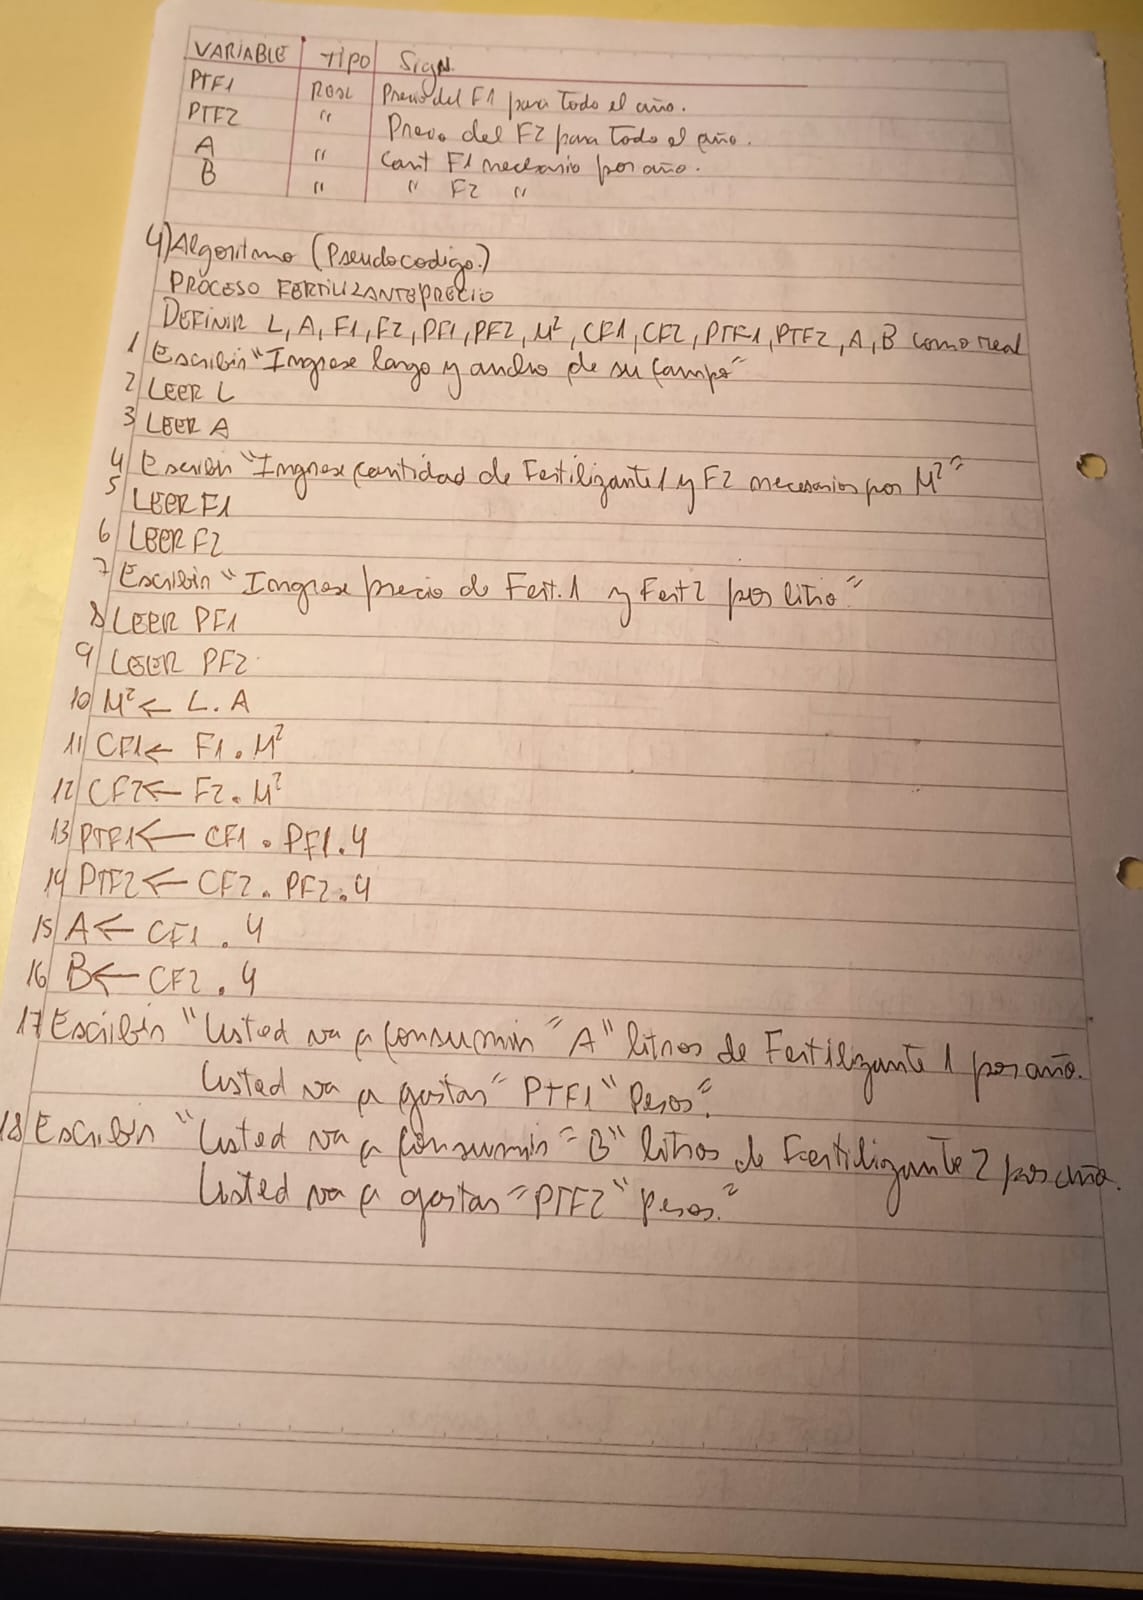 VARIABLE Tipo Sign.
PTF1 Real Precio del F1 para Todo el año.
PTF2 " Precio del F2 para Todo el año.
A " Cant F1 necesario por año.
B " " F2 "
4) Algoritmo (Pseudocodigo.)
PROCESO FERTILIZANTEPRECIO
DEFINIR L, A, F1, F2, PF1, PF2, M², CF1, CF2, PTF1, PTF2, A, B como real
1 Escribir "Ingrese largo y ancho de su campo"
2 LEER L
3 LEER A
4 Escribir "Ingrese cantidad de Fertilizante 1 y F2 necesarios por M²"
5 LEER F1
6 LEER F2
7 Escribir "Ingrese precio de Fert. 1 y Fert 2 por litro"
8 LEER PF1
9 LEER PF2
10 M² ← L . A
11 CF1 ← F1 . M²
12 CF2 ← F2 . M²
13 PTF1 ← CF1 . PF1 . 4
14 PTF2 ← CF2 . PF2 . 4
15 A ← CF1 . 4
16 B ← CF2 . 4
17 Escribir "Usted va a consumir "A" litros de Fertilizante 1 por año.
Usted va a gastar "PTF1" Pesos."
18 Escribir "Usted va a consumir "B" litros de Fertilizante 2 por año.
Usted va a gastar "PTF2" pesos."